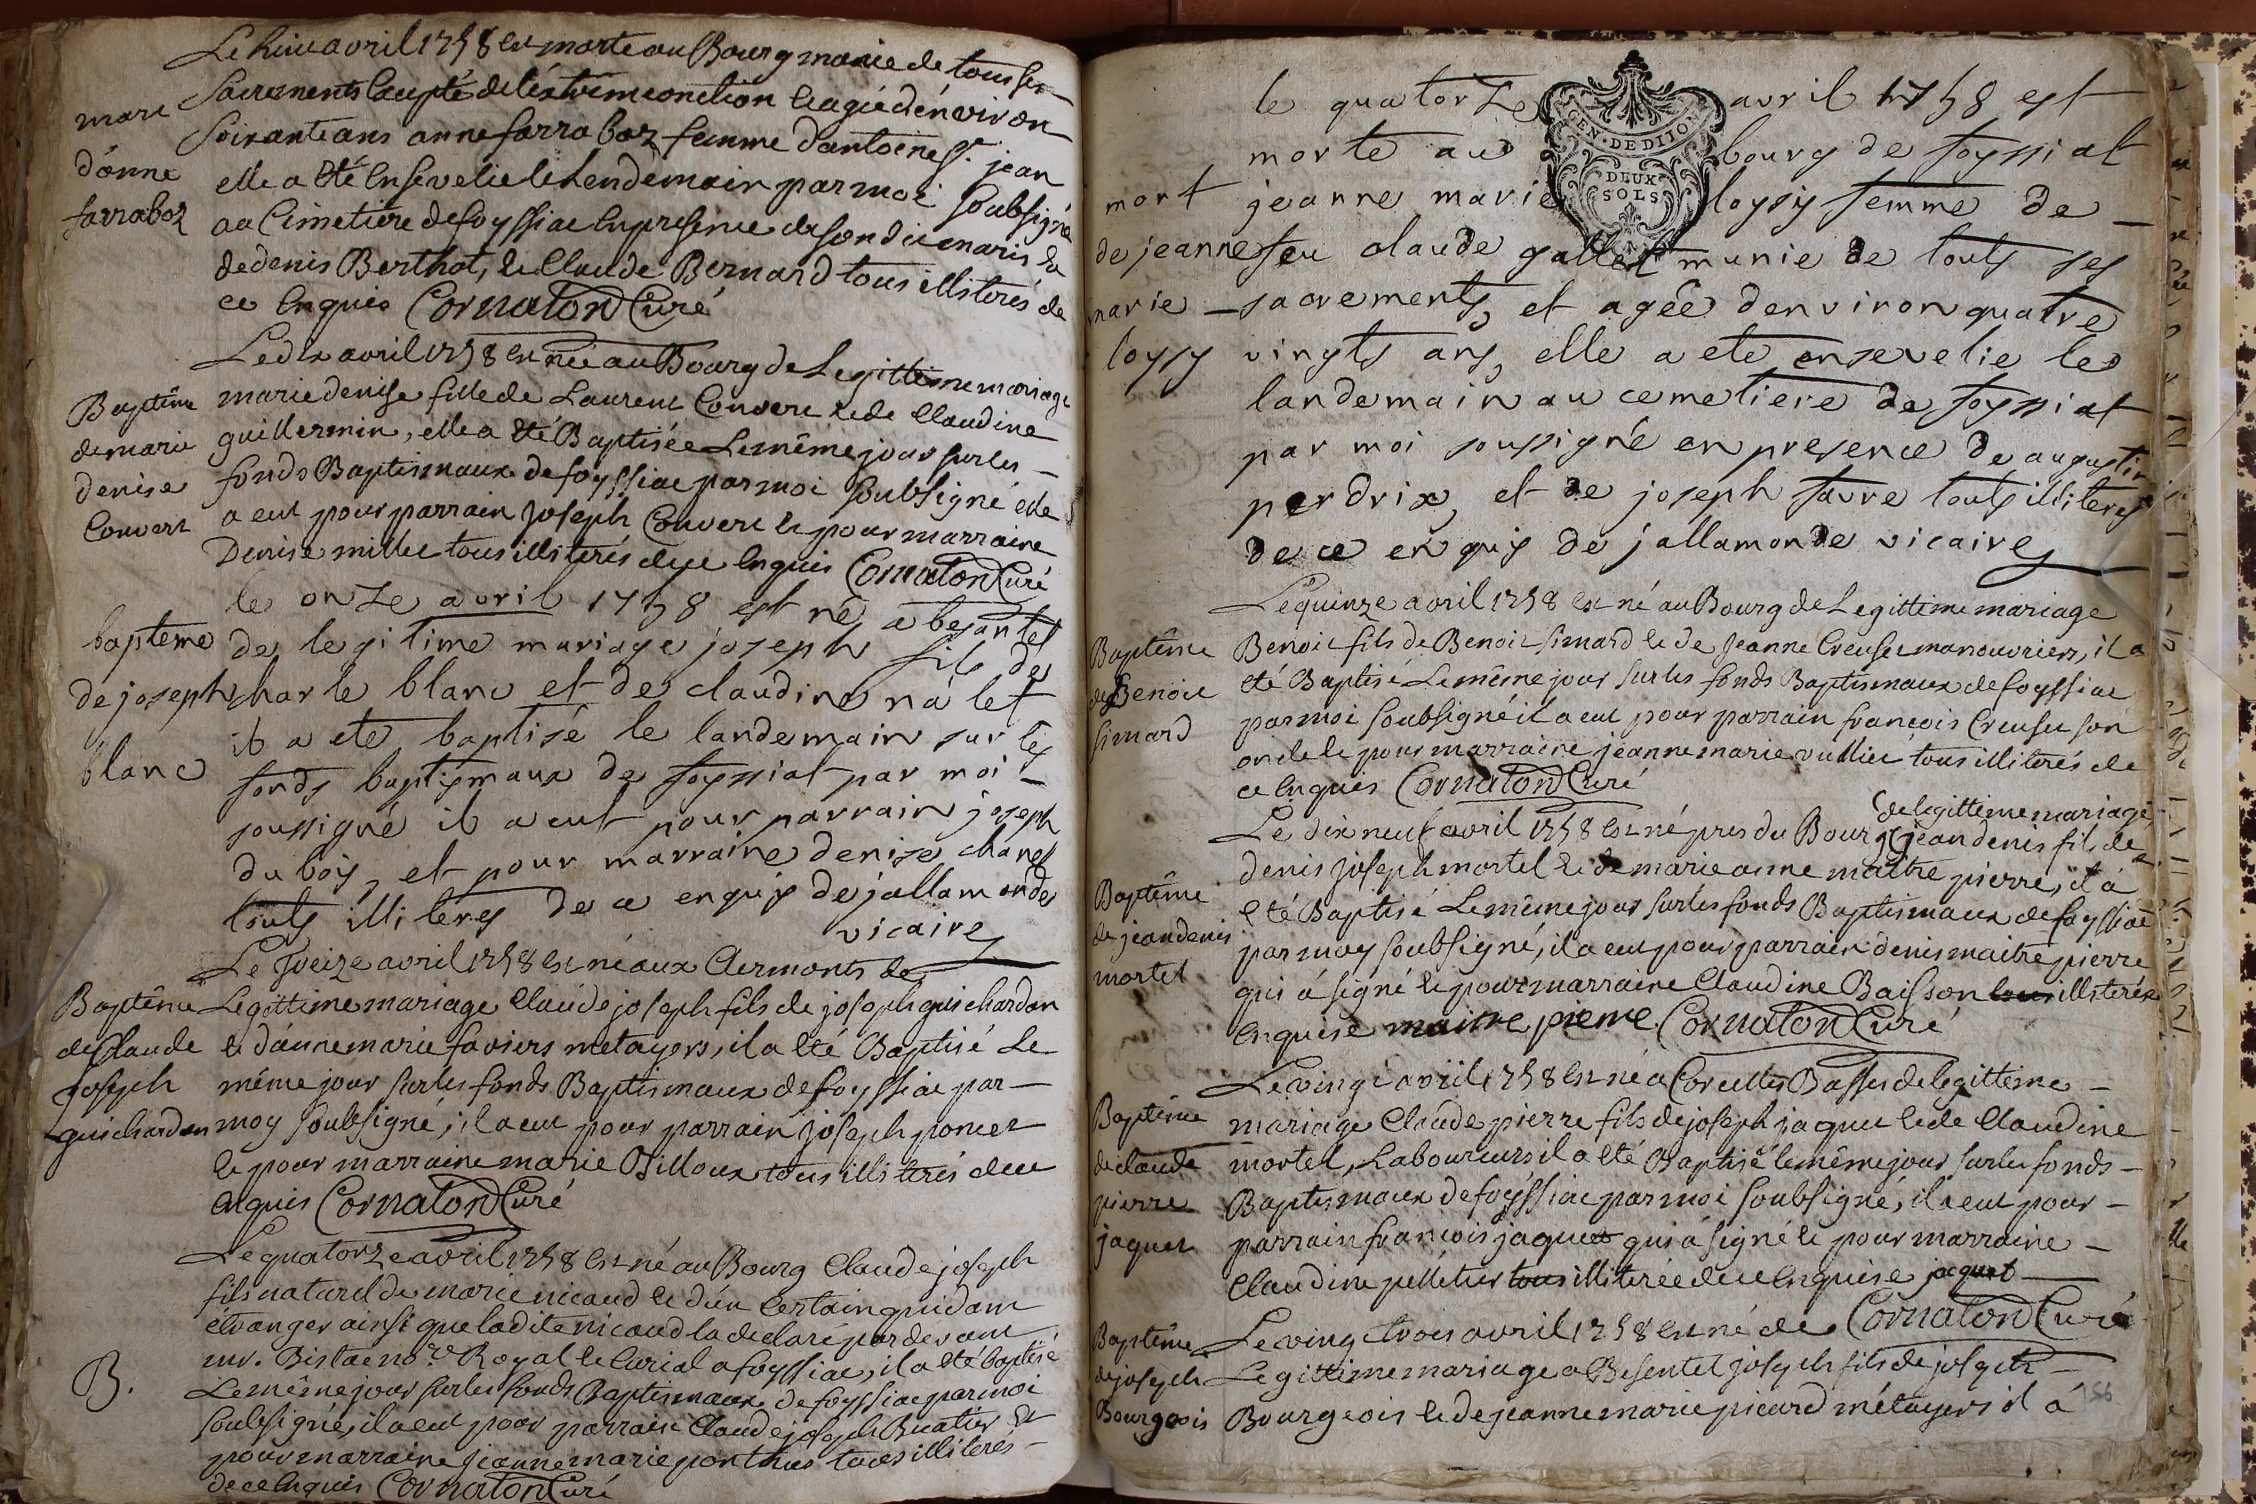 Le huit avril 1758 est morte au Bourg munie de tous ses
sacrements excepté de l'extrêmeonction et agée d'environ
soixante ans anne farraboz femme d'antoine jean
elle a été ensevelie le Lendemain par moi soubsigné
au Cimetiere de foyssiac en presence de son dit maris et
de denis Berthot, et Claude Bernard tous illiterés de
ce enquis Cornaton Curé
mort
d'anne
farraboz
Le dix avril 1758 est née au Bourg de Legittime mariage
marie denise fille de Laurent Convert et de Claudine
guillermin, elle a été Baptisée Le même jour sur les
fonds Baptismaux de foyssiac par moi soubsigné elle
a eut pour parrain joseph Convert et pour marraine
Denise millet tous illiterés de ce enquis Cornaton Curé
Baptême
de marie
denise
Convert
le onze avril 1758 est né a besantet
de legitime mariage joseph fils de
charle blanc et de claudine nalet
il a ete baptisé le landemain sur les
fonds baptismaux de foyssiat par moi
soussigné il a eut pour parrain joseph
du bois, et pour marraine denise chanel
touts illiterés de ce enquis dejallamonde
vicaire
bapteme
de joseph
blanc
Le Treize avril 1758 est né aux Clermonts de
Legittime mariage Claude joseph fils de joseph guichardon
et d'anne marie faviers metayers, il a été Baptisé Le
même jour sur les fonds Baptismaux de foyssiac par
moy soubsigné; il a eut pour parrain joseph poncet
et pour marraine marie Billoux tous illiterés de ce
enquis Cornaton Curé
Baptême
de Claude
joseph
guichardon
Le quatorze avril 1758 est né au Bourg Claude joseph
fils naturel de marie nicaud et d'un certain quidam
étranger ainsi que ladite nicaud la declaré par devant
mr. Bistac nore Royal et Curial a foyssiac, il a été baptisé
Le même jour sur les fonds Baptismaux de foyssiac par moi
soubsigné, il a eut pour parrain Claude joseph Buatier et
pour marraine jeanne marie ponthus tous illiterés
de ce enquis Cornaton Curé
B.
le quatorze avril 1758 est
morte au bourg de foyssiat
jeanne marie loysy femme de
feu claude gallet munie de touts ses
sacrements, et agée denviron quatre
vingts ans, elle a ete ensevelie le
landemain au cemetiere de foyssiat
par moi soussigné en presence de augustin
perdrix, et de joseph favre touts illiterés
de ce enquis de jallamonde vicaire
GEN. DE DIJON
DEUX
SOLS
mort
de jeanne
marie
loysy
Le quinze avril 1758 est né au Bourg de Legittime mariage
Benoit fils de Benoit simard et de Jeanne Creuset manouvriers, il a
été Baptisé Le même jour sur les fonds Baptismaux de foyssiac
par moi soubsigné il a eut pour parrain francois Creuset son
oncle et pour marraine jeanne marie vulliet tous illiterés de
ce enquis Cornaton Curé
Baptême
de Benoit
simard
de legittime mariage
Le dix neuf avril 1758 est né pres du Bourg jean denis fils de
denis joseph mortel et de marie anne maitre pierre, il a
été Baptisé Le même jour sur les fonds Baptismaux de foyssiac
par moy soubsigné, il a eut pour parrain denis maitre pierre
qui a signé et pour marraine Claudine Baisson tous illiterée
enquise maitre pierre Cornaton Curé
Baptême
de jean denis
mortel
Le vingt avril 1758 est né a Corcelles Basses de legittime
mariage Claude pierre fils de joseph jaquet et de Claudine
mortel, Laboureurs il a été Baptisé le même jour sur les fonds
Baptismaux de foyssiac par moi soubsigné, il a eut pour
parrain francois jaquet qui a signé et pour marraine
Claudine pelletier tous illiterée de ce enquise jaquet
Cornaton Curé
Baptême
de claude
pierre
jaquet
Le vingt trois avril 1758 est né de
Legittime mariage a Besentet joseph fils de joseph
Bourgeois et de jeanne marie picard métayers il a
Baptême
de joseph
Bourgeois
156